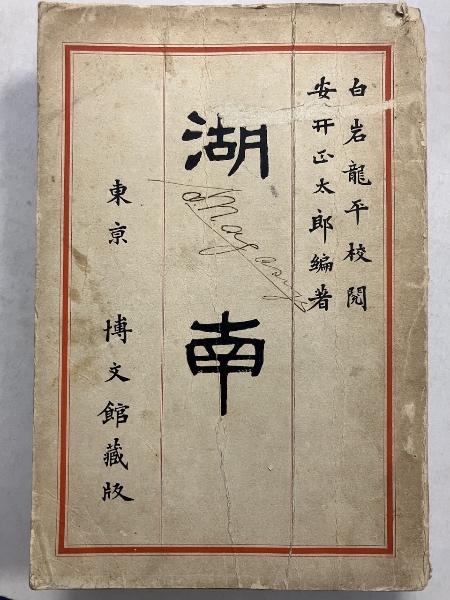 白岩龍平校閲
安井正太郎編著
湖南
東京 博文館藏版